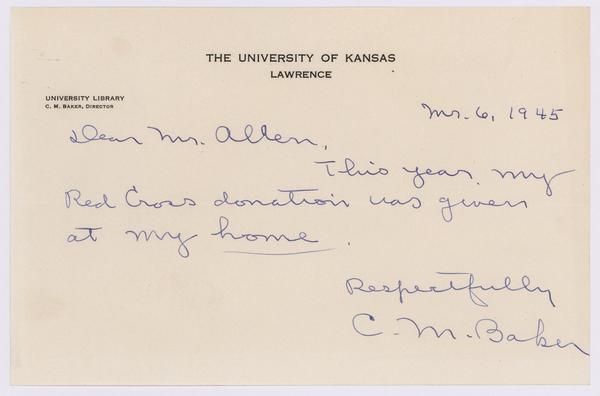 THE UNIVERSITY OF KANSAS
LAWRENCE
UNIVERSITY LIBRARY
C. M. BAKER, DIRECTOR
Mr. 6, 1945
Dear Mr. Allen,
This year my
Red Cross donation was given
at my home.
Respectfully
C. M. Baker